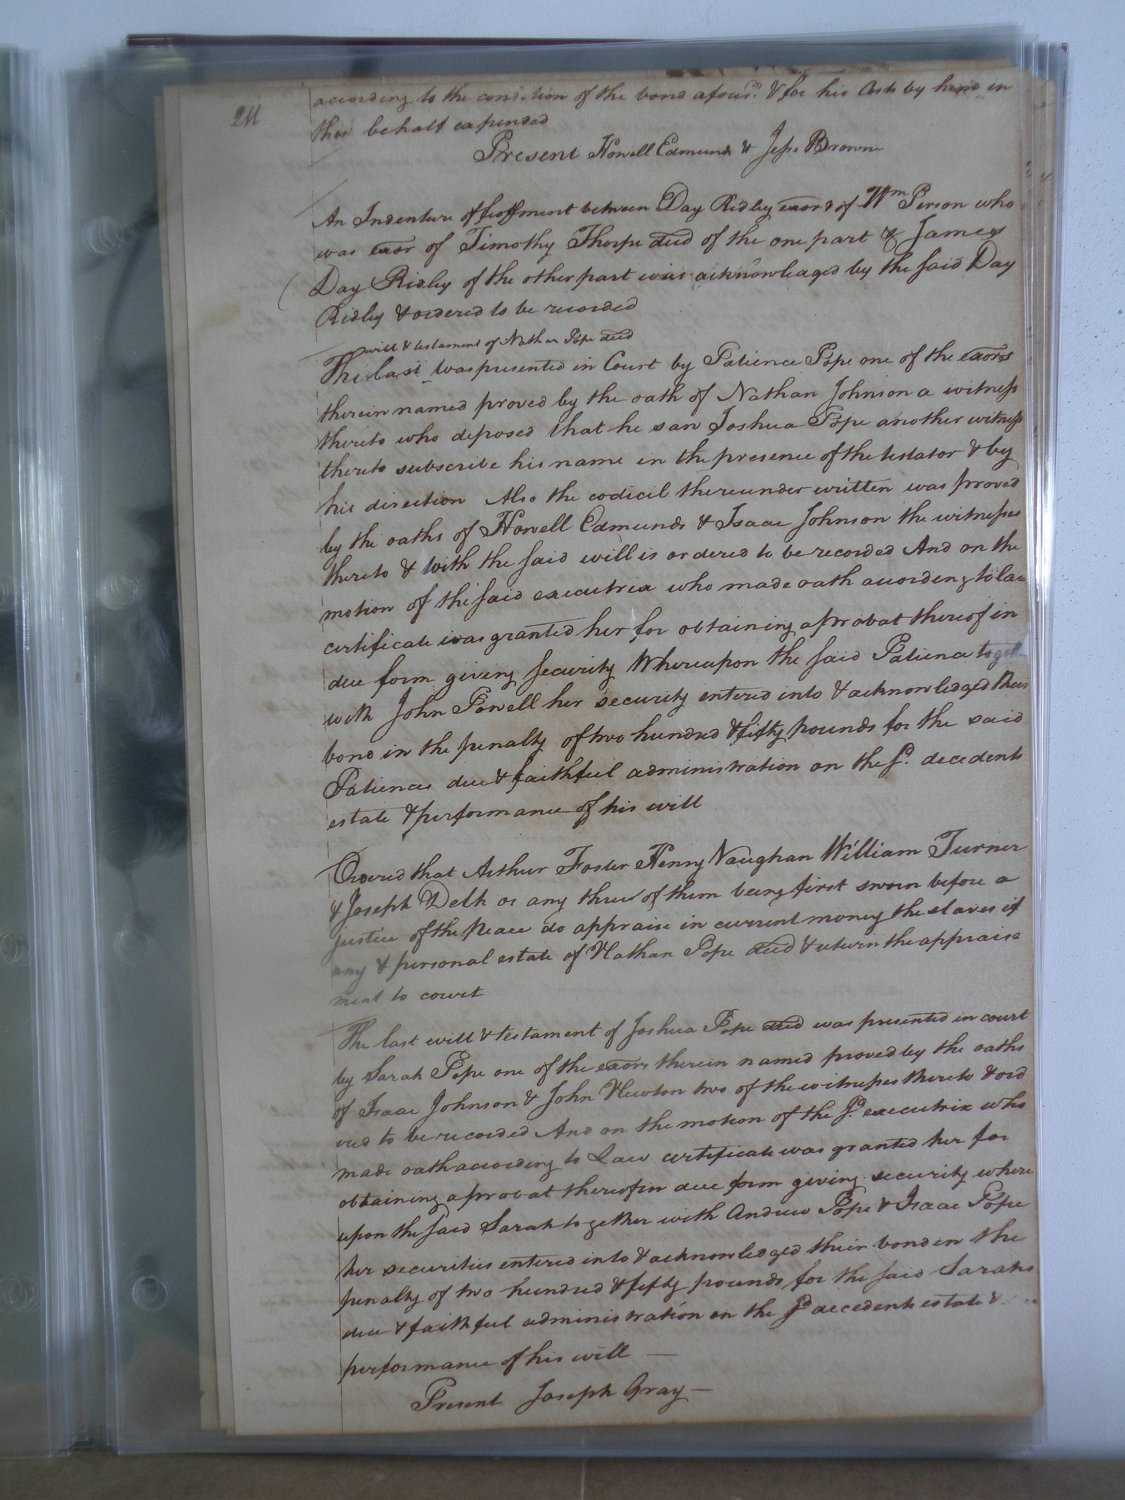 211
according to the condition of the bond afores.d & for his Costs by him in
this behalf expended
Present Howell Edmunds & Jesse Brown
An Indenture of feoffment between Day Ridley exor of Wm Person who
was exor of Timothy Thorpe decd of the one part & James
Day Ridley of the other part was acknowledged by the said Day
Ridley & ordered to be recorded
will & testament of Nathan Pope decd
The last was presented in Court by Patience Pope one of the exors
therein named proved by the oath of Nathan Johnson a witness
thereto who deposed that he saw Joshua Pope another witness
thereto subscribe his name in the presence of the testator & by
his direction Also the codicil thereunder written was proved
by the oaths of Howell Edmunds & Isaac Johnson the witnesses
thereto & with the said will is ordered to be recorded And on the
motion of the said executrix who made oath according to law
certificate was granted her for obtaining a probat thereof in
due form giving security Whereupon the said Patience togeth
with John Powell her security entered into & acknowledged their
bond in the penalty of two hundred & fifty pounds for the said
Patiences due & faithful administration on the s.d decedents
estate & performance of his will
Ordered that Arthur Foster Henry Vaughan William Turner
& Joseph Delk or any three of them being first sworn before a
justice of the Peace do appraise in current money the slaves if
any & personal estate of Nathan Pope decd & return the appraise
ment to court
The last will & testament of Joshua Pope decd was presented in court
by Sarah Pope one of the exors therein named proved by the oaths
of Isaac Johnson & John Newton two of the witnesses thereto & ord
ered to be recorded And on the motion of the s.d executrix who
made oath according to Law certificate was granted her for
obtaining a probat thereof in due form giving security where
upon the said Sarah together with Andrew Pope & Isaac Pope
her securities entered into & acknowledged their bond in the
penalty of two hundred & fifty pounds for the said Sarahs
due & faithful administration on the s.d decedents estate &
performance of his will —
Present Joseph Gray —